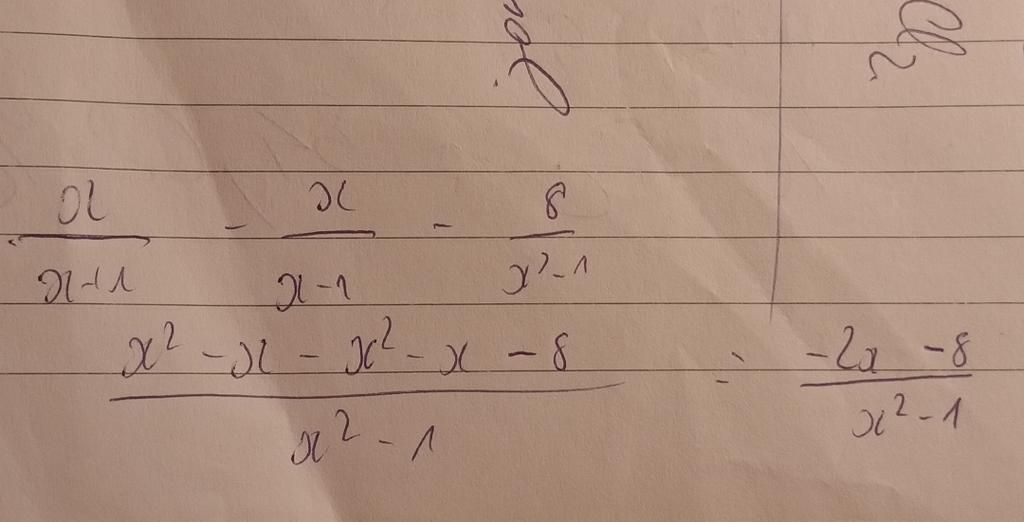 x/(x+1) - x/(x-1) - 8/(x²-1)
(x² - x - x² - x - 8)/(x² - 1) = (-2x - 8)/(x² - 1)